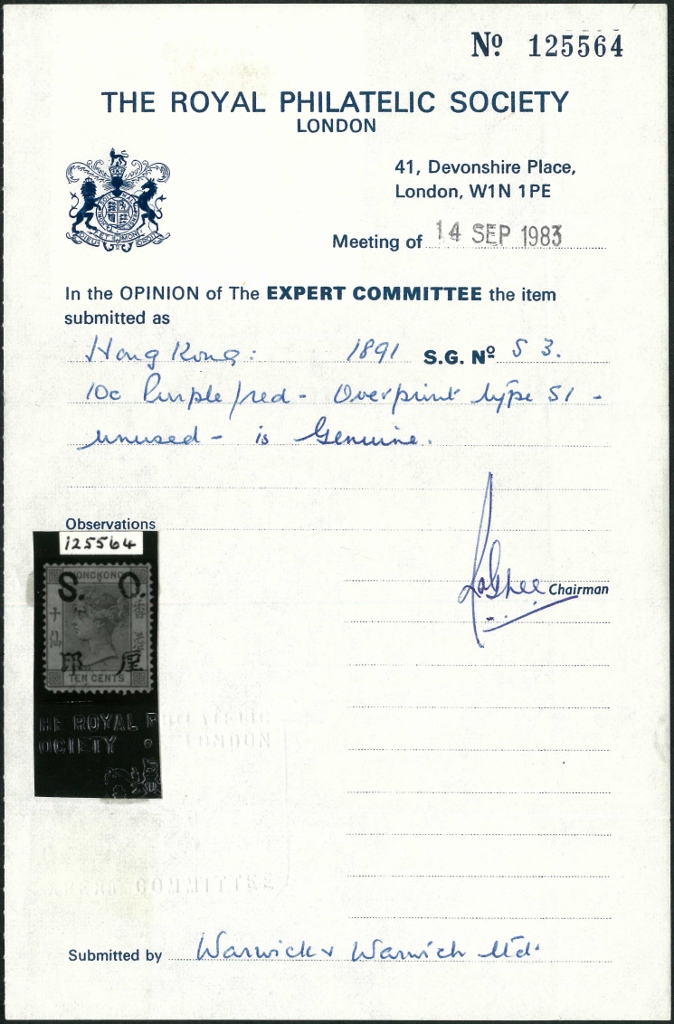 Nº 125564
THE ROYAL PHILATELIC SOCIETY
LONDON
41, Devonshire Place,
London, W1N 1PE
Meeting of 14 SEP 1983
In the OPINION of The EXPERT COMMITTEE the item
submitted as
Hong Kong: 1891 S.G. Nº S 3.
10c Purple/red - Overprint type S1 -
unused - is Genuine.
Observations
125564
HONGKONG
S. O.
TEN CENTS
HE ROYAL PHILATELIC
OCIETY LONDON
Chairman
EXPERT COMMITTEE
Submitted by Warwick & Warwick Ltd.